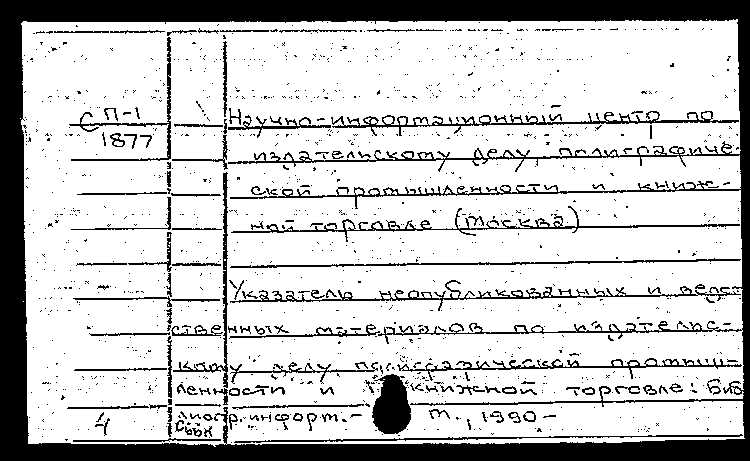 С П-1
1877
Научно-информационный центр по
издательскому делу, полиграфиче-
ской промышленности и книж-
ной торговле (Москва)
Указатель неопубликованных и ведом
ственных материалов по издательс-
кому делу, полиграфической промыш-
ленности и книжной торговле: Биб
лиогр. информ. - М., 1990 -
4